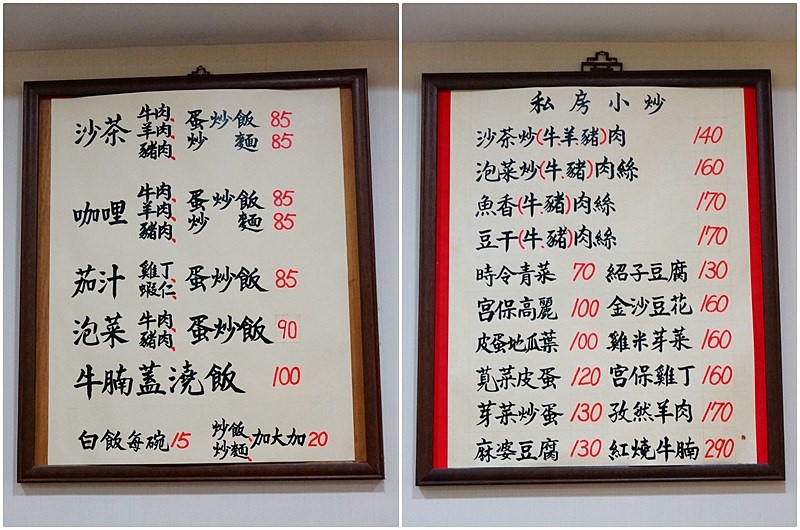 沙茶 牛肉、羊肉、豬肉、 蛋炒飯 85
炒麵 85
咖哩 牛肉、羊肉、豬肉、 蛋炒飯 85
炒麵 85
茄汁 雞丁、蝦仁、 蛋炒飯 85
泡菜 牛肉、豬肉、 蛋炒飯 90
牛腩蓋澆飯 100
白飯每碗15 炒飯、炒麵、加大加20
私房小炒
沙茶炒(牛.羊豬)肉 140
泡菜炒(牛.豬)肉絲 160
魚香(牛.豬)肉絲 170
豆干(牛.豬)肉絲 170
時令青菜 70 紹子豆腐 130
宮保高麗 100 金沙豆花 160
皮蛋地瓜葉 100 雞米芽菜 160
莧菜皮蛋 120 宮保雞丁 160
芽菜炒蛋 130 孜然羊肉 170
麻婆豆腐 130 紅燒牛腩 290